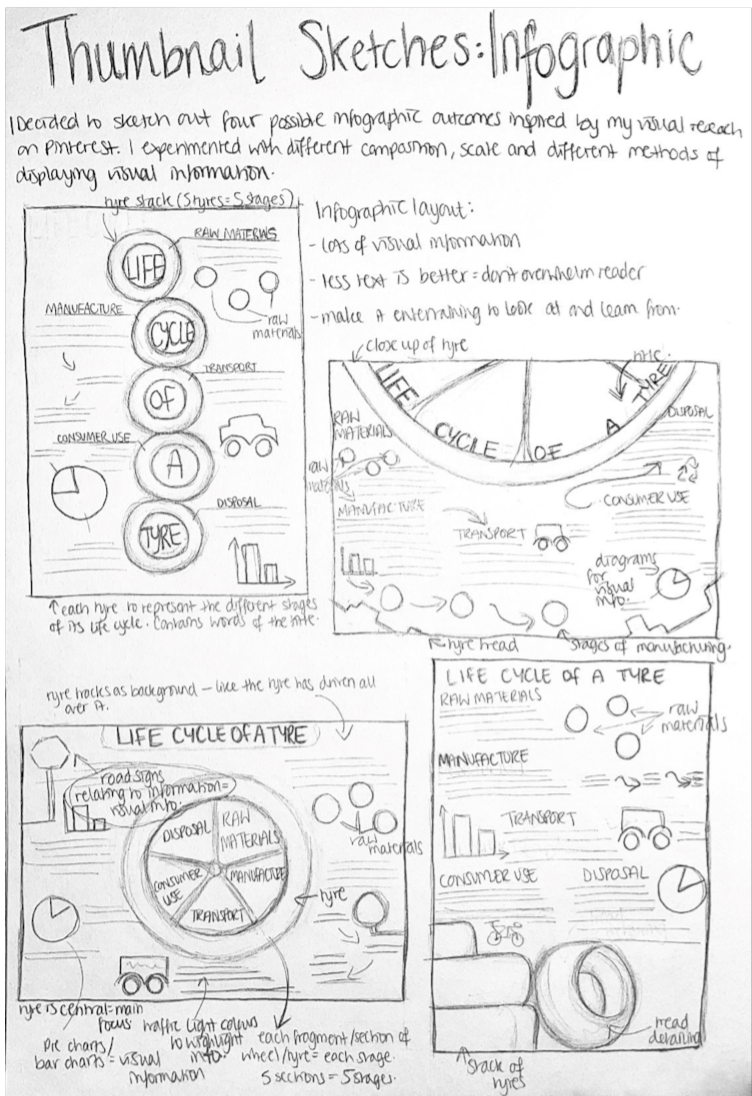 Thumbnail Sketches: Infographic
I Decided to sketch out four possible infographic outcomes inspired by my visual reseach
on Pinterest. I experimented with different composition, scale and different methods of
displaying visual information.
tyre stack (5 tyres = 5 stages)
RAW MATERIALS
LIFE
raw
materials
MANUFACTURE
CYCLE
TRANSPORT
OF
CONSUMER USE
A
DISPOSAL
TYRE
↑ each tyre to represent the different stages
of its life cycle. Contains words of the title.
Infographic layout:
- lots of visual information
- less text is better = don't overwhelm reader
- make it entertaining to look at and learn from.
close up of tyre
title.
LIFE CYCLE OF A TYRE
RAW
MATERIALS
DISPOSAL
raw
materials
MANUFACTURE
CONSUMER USE
TRANSPORT
diagrams
for
visual
info.
tyre tread
stages of manufacturing.
tyre tracks as background - like the tyre has driven all
over it.
LIFE CYCLE OF A TYRE
road signs
relating to information =
visual info.
DISPOSAL
RAW
MATERIALS
CONSUMER
USE
MANUFACTURE
TRANSPORT
raw
materials
tyre
tyre is central = main
focus
Pie charts /
bar charts = visual
information
traffic light colours
to highlight
info.
each fragment/section of
wheel/tyre = each stage.
5 sections = 5 stages.
LIFE CYCLE OF A TYRE
RAW MATERIALS
raw
materials
MANUFACTURE
TRANSPORT
CONSUMER USE
DISPOSAL
tread
detailing
stack of
tyres